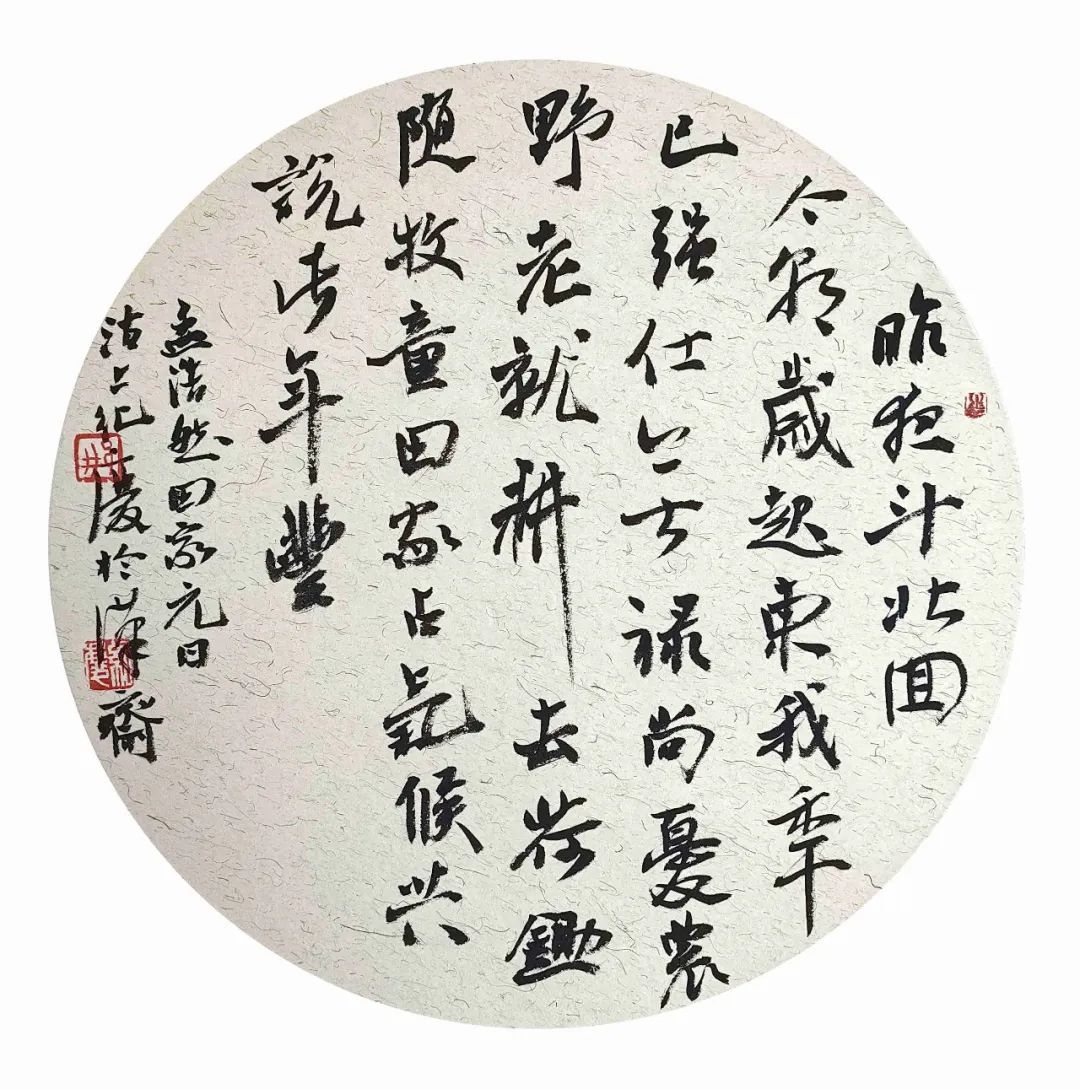 昨夜斗北回
今朝歲起東我年
已强仕無祿尚憂農
野老就耕去荷鋤
随牧童田家占氣候共
説此年豐
孟浩然田家元日
沽上慶於齋